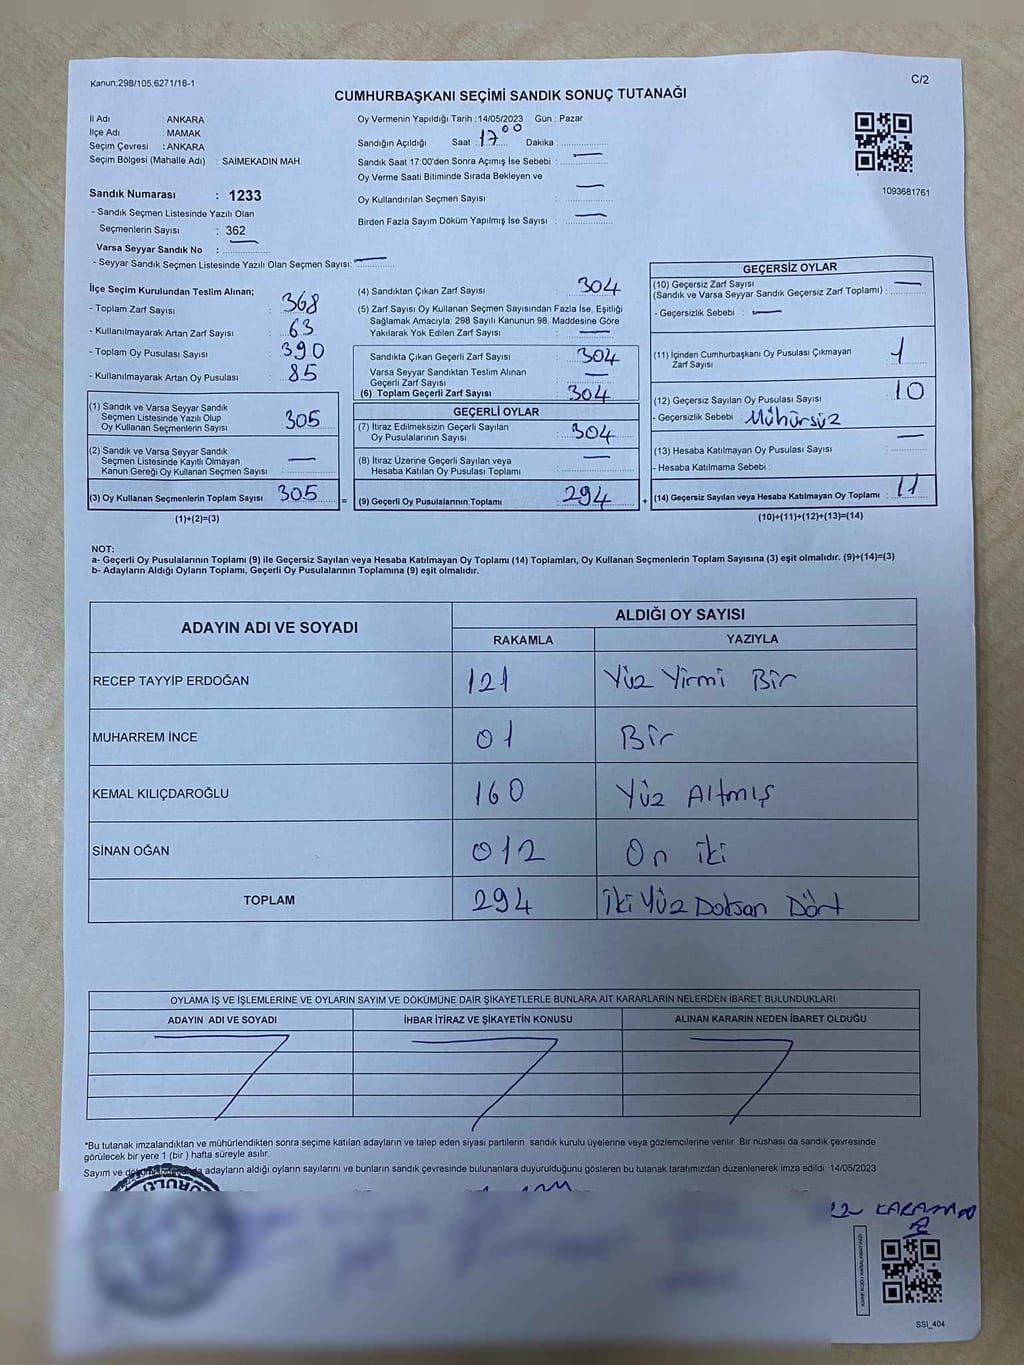 Kanun:298/105;6271/18-1
C/2
CUMHURBAŞKANI SEÇİMİ SANDIK SONUÇ TUTANAĞI
İl Adı : ANKARA
İlçe Adı : MAMAK
Seçim Çevresi : ANKARA
Seçim Bölgesi (Mahalle Adı) : SAİMEKADIN MAH.
Sandık Numarası : 1233
- Sandık Seçmen Listesinde Yazılı Olan
Seçmenlerin Sayısı : 362
Varsa Seyyar Sandık No :
- Seyyar Sandık Seçmen Listesinde Yazılı Olan Seçmen Sayısı:
Oy Vermenin Yapıldığı Tarih :14/05/2023 Gün : Pazar
Sandığın Açıldığı Saat : 17 00 Dakika :
Sandık Saat 17:00'den Sonra Açımış İse Sebebi :
Oy Verme Saati Bitiminde Sırada Bekleyen ve
Oy Kullandırılan Seçmen Sayısı :
Birden Fazla Sayım Döküm Yapılmış İse Sayısı :
1093681761
İlçe Seçim Kurulundan Teslim Alınan;
- Toplam Zarf Sayısı : 368
- Kullanılmayarak Artan Zarf Sayısı : 63
- Toplam Oy Pusulası Sayısı : 390
- Kullanılmayarak Artan Oy Pusulası : 85
(1) Sandık ve Varsa Seyyar Sandık
Seçmen Listesinde Yazılı Olup
Oy Kullanan Seçmenlerin Sayısı : 305
(2) Sandık ve Varsa Seyyar Sandık
Seçmen Listesinde Kayıtlı Olmayan
Kanun Gereği Oy Kullanan Seçmen Sayısı :
(3) Oy Kullanan Seçmenlerin Toplam Sayısı : 305
(1)+(2)=(3)
(4) Sandıktan Çıkan Zarf Sayısı : 304
(5) Zarf Sayısı Oy Kullanan Seçmen Sayısından Fazla İse, Eşitliği
Sağlamak Amacıyla; 298 Sayılı Kanunun 98. Maddesine Göre
Yakılarak Yok Edilen Zarf Sayısı :
Sandıkta Çıkan Geçerli Zarf Sayısı : 304
Varsa Seyyar Sandıktan Teslim Alınan
Geçerli Zarf Sayısı :
(6) Toplam Geçerli Zarf Sayısı : 304
GEÇERLİ OYLAR
(7) İtiraz Edilmeksizin Geçerli Sayılan
Oy Pusulalarının Sayısı : 304
(8) İtiraz Üzerine Geçerli Sayılan veya
Hesaba Katılan Oy Pusulası Toplamı :
= (9) Geçerli Oy Pusulalarının Toplamı : 294 +
GEÇERSİZ OYLAR
(10) Geçersiz Zarf Sayısı
(Sandık ve Varsa Seyyar Sandık Geçersiz Zarf Toplamı) :
- Geçersizlik Sebebi :
(11) İçinden Cumhurbaşkanı Oy Pusulası Çıkmayan
Zarf Sayısı : 1
(12) Geçersiz Sayılan Oy Pusulası Sayısı : 10
- Geçersizlik Sebebi : Mühürsüz
(13) Hesaba Katılmayan Oy Pusulası Sayısı :
- Hesaba Katılmama Sebebi :
(14) Geçersiz Sayılan veya Hesaba Katılmayan Oy Toplamı : 11
(10)+(11)+(12)+(13)=(14)
NOT:
a- Geçerli Oy Pusulalarının Toplamı (9) ile Geçersiz Sayılan veya Hesaba Katılmayan Oy Toplamı (14) Toplamları, Oy Kullanan Seçmenlerin Toplam Sayısına (3) eşit olmalıdır. (9)+(14)=(3)
b- Adayların Aldığı Oyların Toplamı, Geçerli Oy Pusulalarının Toplamına (9) eşit olmalıdır.
ADAYIN ADI VE SOYADI
ALDIĞI OY SAYISI
RAKAMLA YAZIYLA
RECEP TAYYİP ERDOĞAN 121 Yüz Yirmi Bir
MUHARREM İNCE 01 Bir
KEMAL KILIÇDAROĞLU 160 Yüz Altmış
SİNAN OĞAN 012 On iki
TOPLAM 294 iki Yüz Doksan Dört
OYLAMA İŞ VE İŞLEMLERİNE VE OYLARIN SAYIM VE DÖKÜMÜNE DAİR ŞİKAYETLERLE BUNLARA AİT KARARLARIN NELERDEN İBARET BULUNDUKLARI
ADAYIN ADI VE SOYADI İHBAR İTİRAZ VE ŞİKAYETİN KONUSU ALINAN KARARIN NEDEN İBARET OLDUĞU
*Bu tutanak imzalandıktan ve mühürlendikten sonra seçime katılan adayların ve talep eden siyasi partilerin sandık kurulu üyelerine veya gözlemcilerine verilir. Bir nüshası da sandık çevresinde
görülecek bir yere 1 (bir ) hafta süreyle asılır.
Sayım ve adayların aldığı oyların sayılarını ve bunların sandık çevresinde bulunanlara duyurulduğunu gösteren bu tutanak tarafımızdan düzenlenerek imza edildi. 14/05/2023
SSI_404